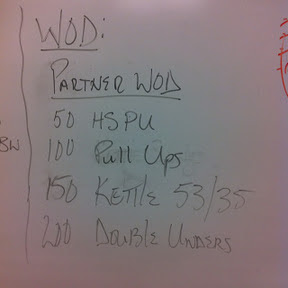 WOD:
PARTNER WOD
50 HSPU
100 Pull Ups
150 KETTLE 53/35
200 DOUBLE UNDERS